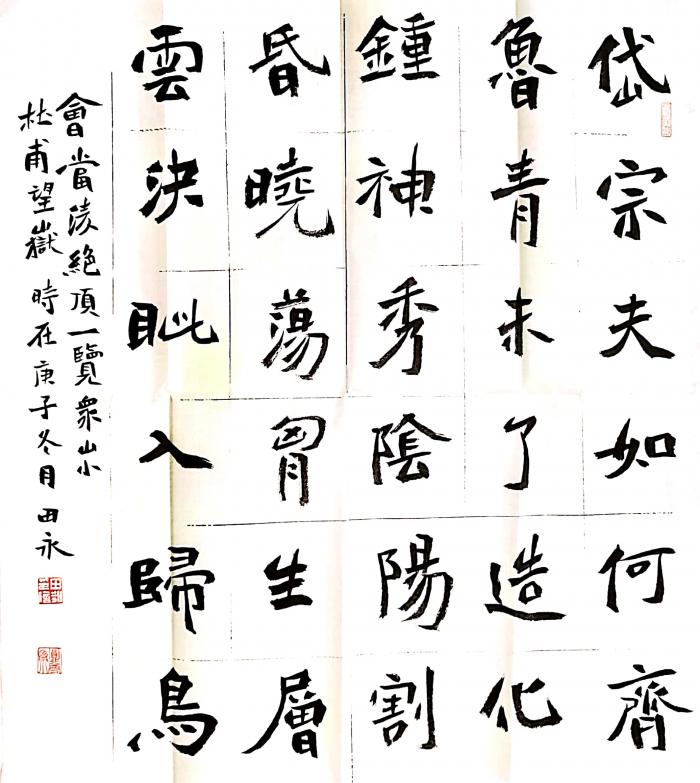 岱宗夫如何齊
魯青未了造化
鍾神秀陰陽割
昏曉蕩胷生層
雲決眦入歸鳥
會當淩絕頂一覽衆山小
杜甫望嶽時在庚子冬月田永